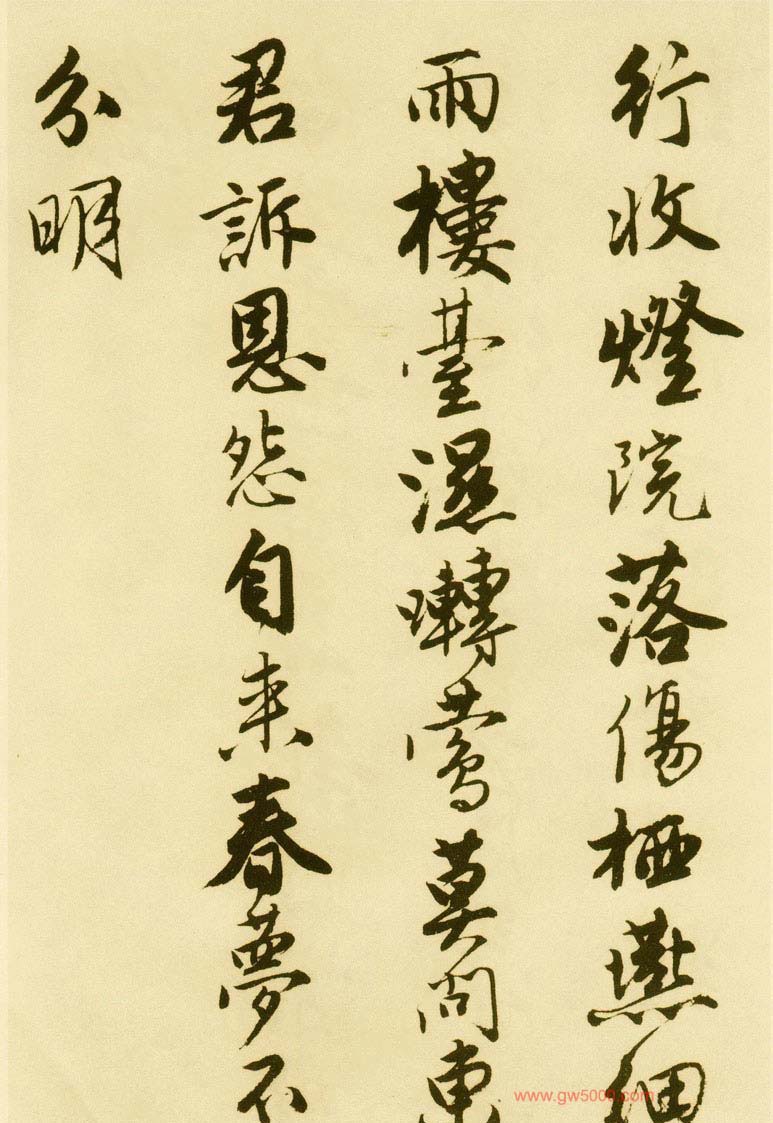 行收燈院落傷栖燕細
雨樓臺濕囀鶯莫問東
君訴恩怨自来春夢不
分明
www.gw5000.com